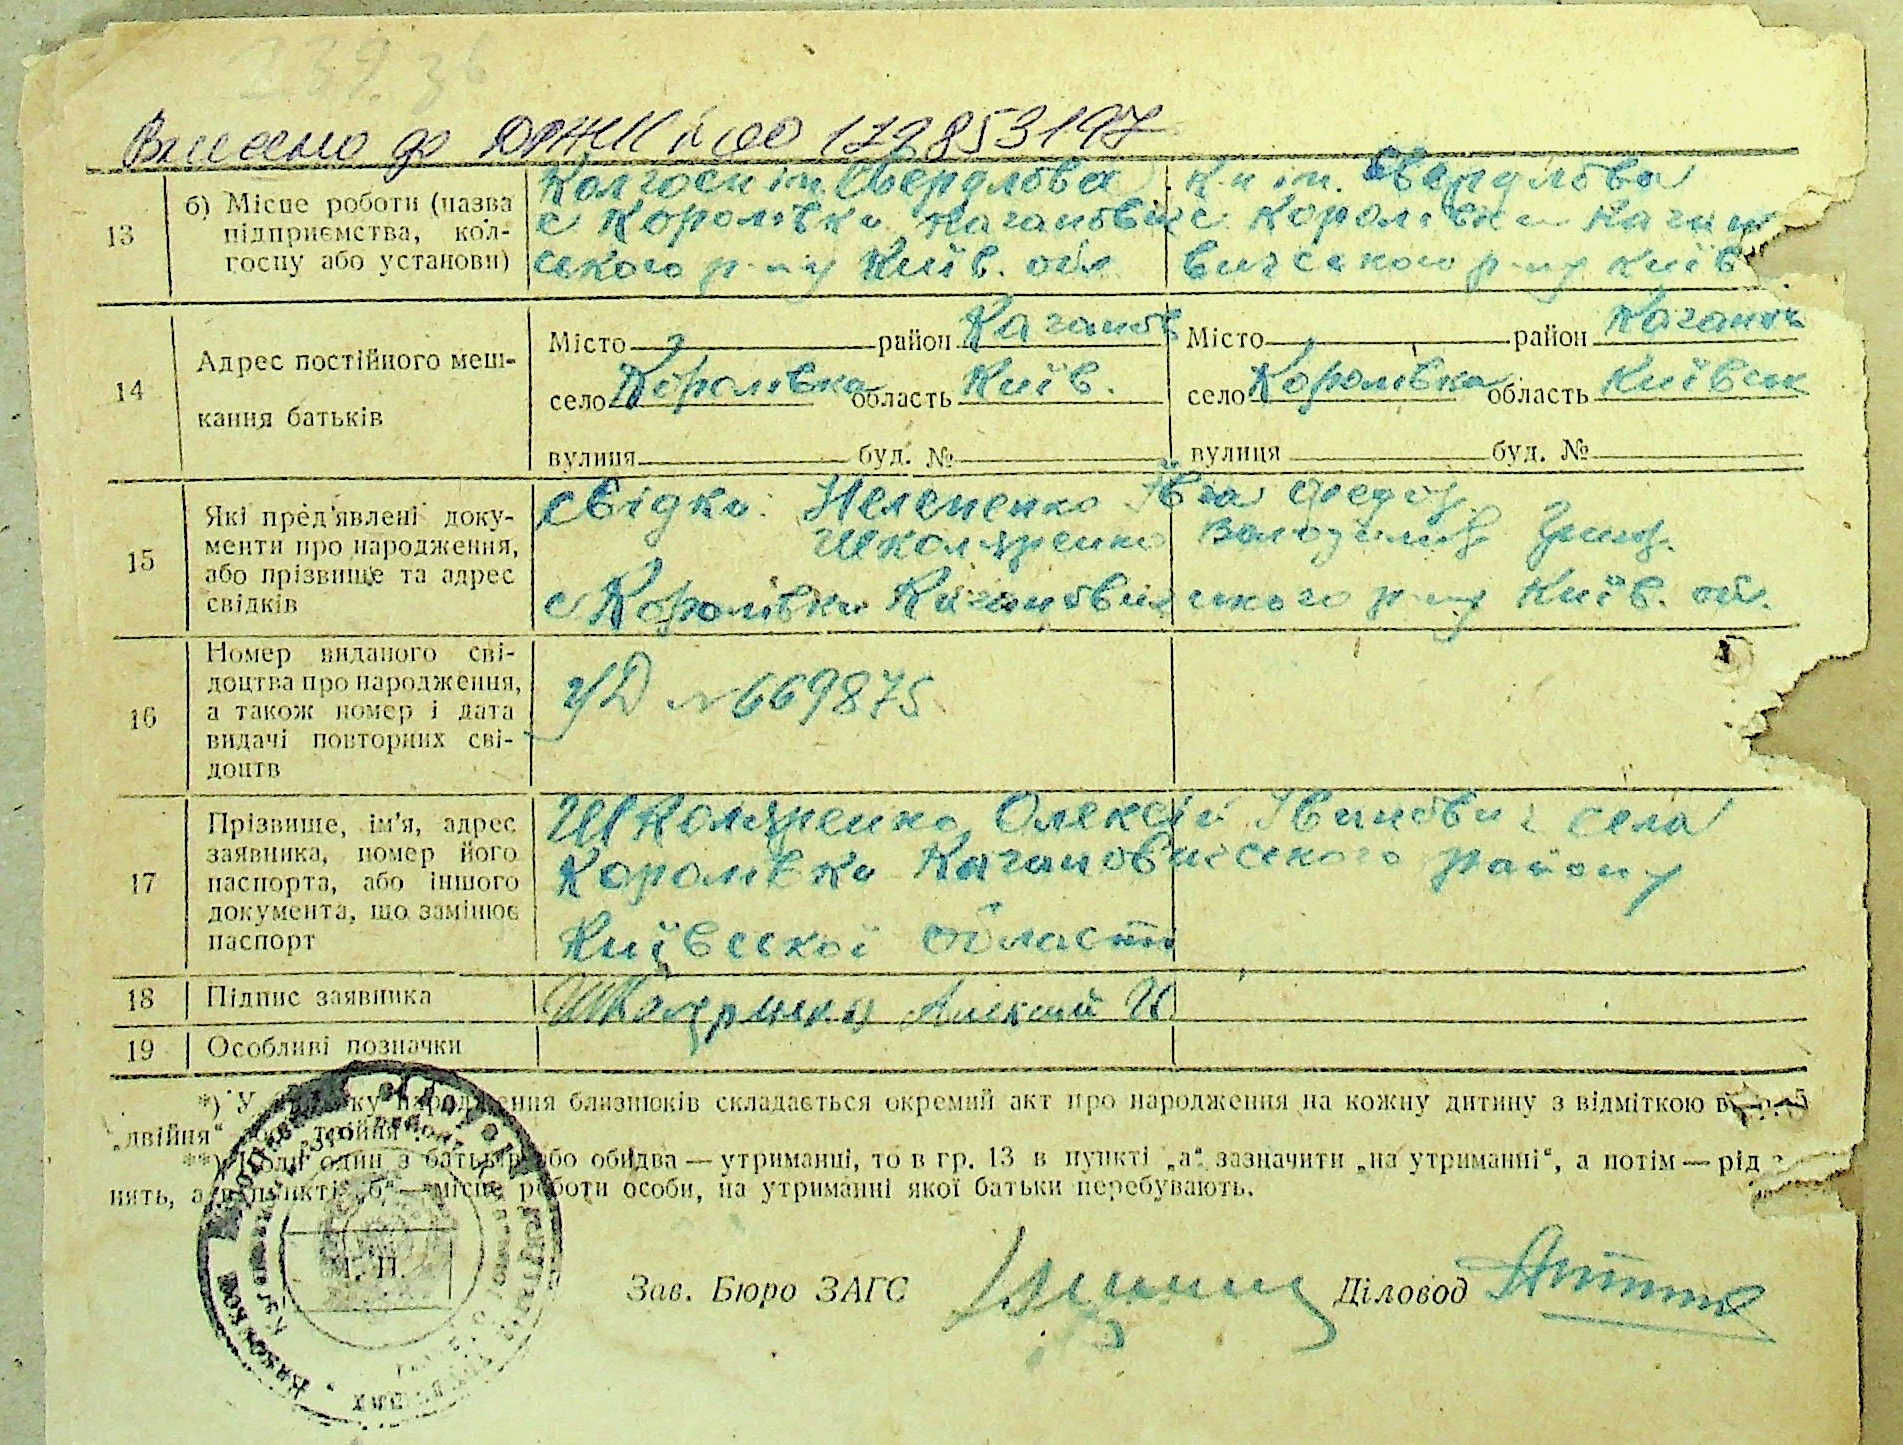 Внесено до ДРЖК № 00 179853197
13
б) Місце роботи (назва підприємства, кол-госпу або установи)
Колгосп ім. Свердлова
с Королівки Каганович
ського р-ну Київ. обл
К-п ім. Свердлова
с. Королівки Кагано
вичського р-ну Київ
14
Адрес постійного меш-
кання батьків
Місто район Каганов
село Королівка область Київ.
вулиця буд. №
Місто район Каганович
село Королівка область Київськ
вулиця буд. №
15
Які пред'явлені доку-
менти про народження,
або прізвище та адрес
свідків
свідки: Нелепенко Ївга Федор.
Школяренко Володимир Григ.
с Королівки Кагановичського р-ну Київ. обл.
16
Номер виданого сві-
доцтва про народження,
а також номер і дата
видачі повторних сві-
доцтв
УД № 669875
17
Прізвище, ім'я, адрес
заявника, номер його
паспорта, або іншого
документа, що замінює
паспорт
Школяренко Олексій Іванович села
Королівки Кагановичського району
Київської області
18
Підпис заявника
Школяренко Алексей И
19
Особливі позначки
*) У народження близнюків складається окремий акт про народження на кожну дитину з відміткою
„двійня“ „трійня“.
**) Коли один з батьків або обидва — утриманці, то в гр. 13 в пункті „а“ зазначити „на утриманні“, а потім — рід
нять, а в пункті „б“ — місце роботи особи, на утриманні якої батьки перебувають.
М. П.
Зав. Бюро ЗАГС
Діловод